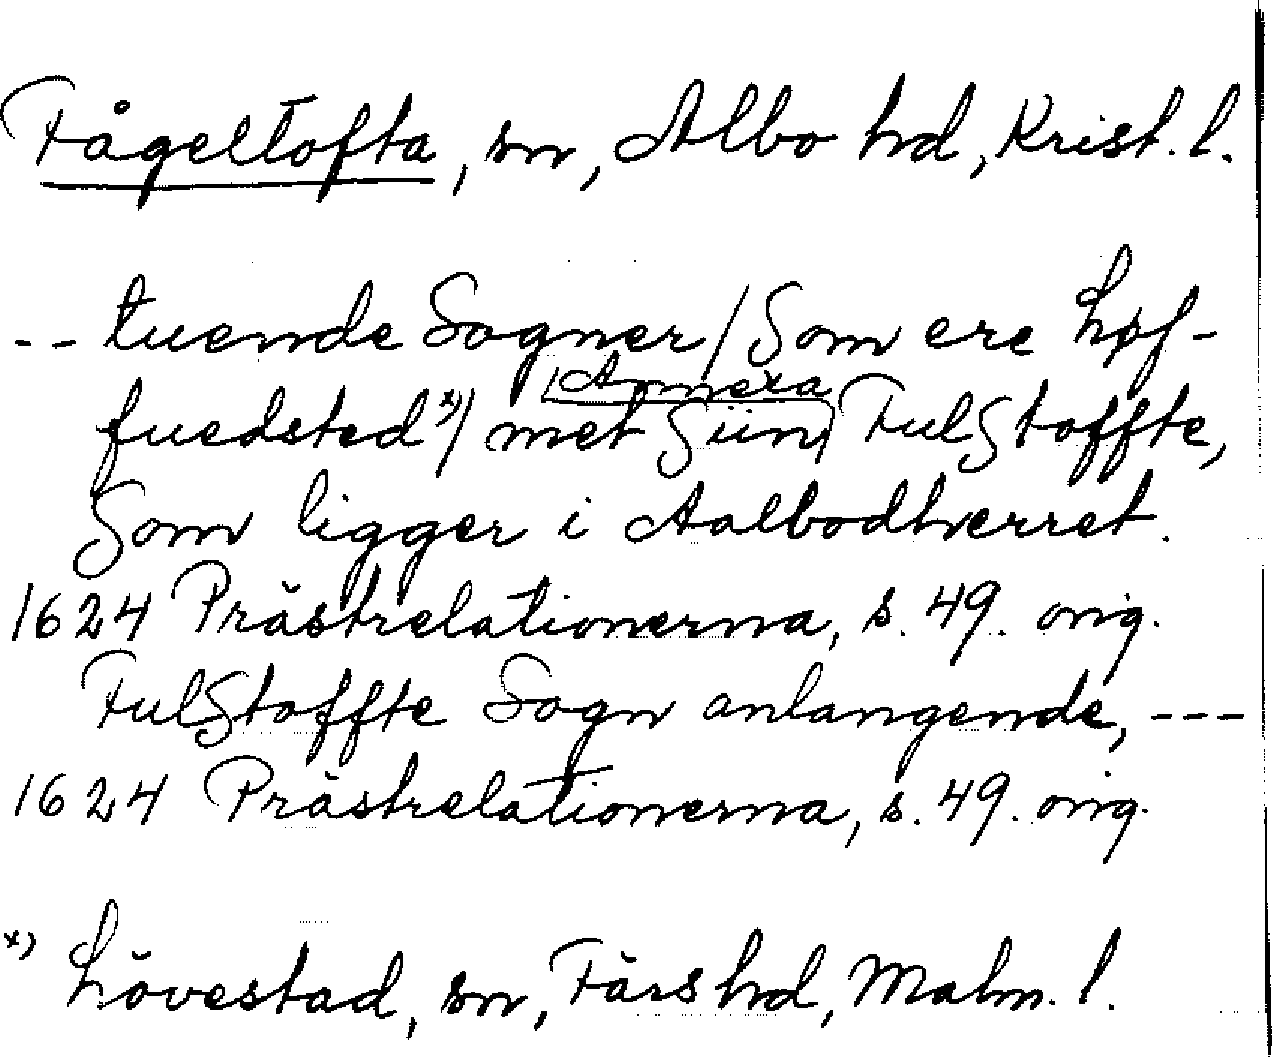 Fågeltofta, sn, Albo hd, Krist. l.
-- tuende Sogner / Som ere Løf-
fuedsted x) / met Siin / Annexa / Fulstoffte,
Som ligger i Aalbodherret.
1624 Prästrelationerna, s. 49. orig.
Fulstoffte Sogn anlangende, ---
1624 Prästrelationerna, s. 49. orig.
x) Lövestad, sn, Färs hd, Malm. l.